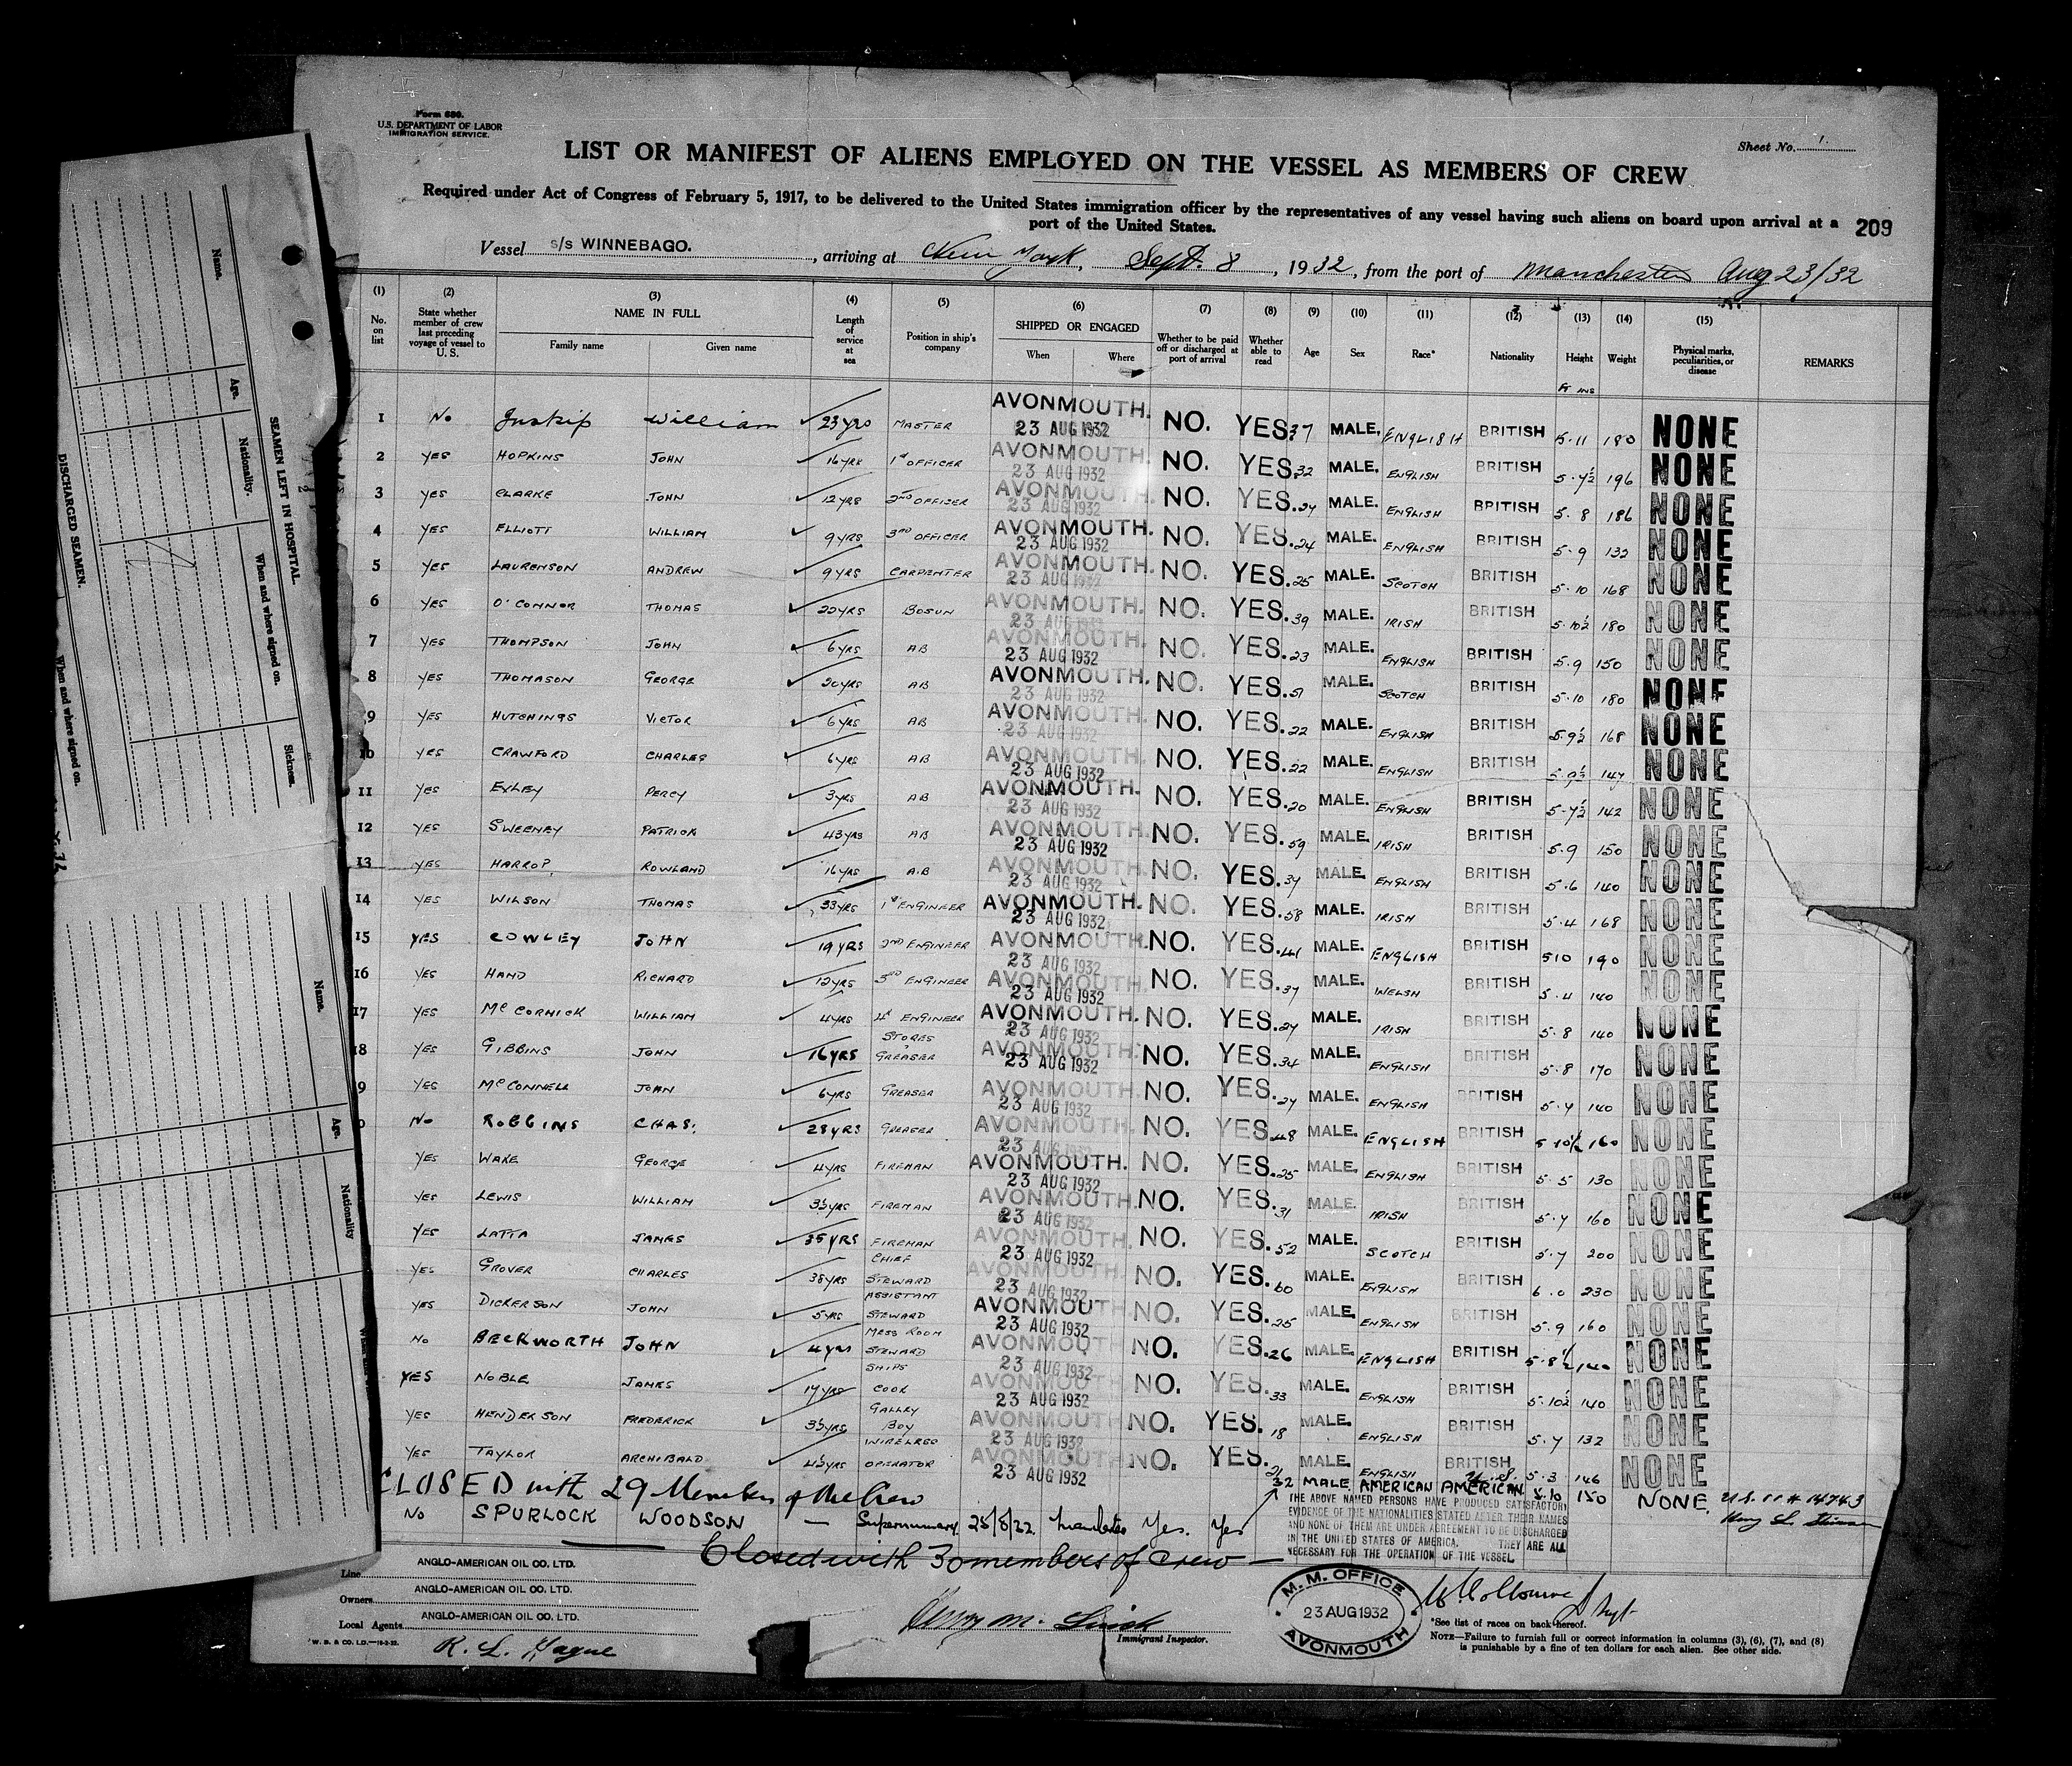 Form 680.
U.S. DEPARTMENT OF LABOR
IMMIGRATION SERVICE.
Sheet No. 1.
LIST OR MANIFEST OF ALIENS EMPLOYED ON THE VESSEL AS MEMBERS OF CREW
Required under Act of Congress of February 5, 1917, to be delivered to the United States immigration officer by the representatives of any vessel having such aliens on board upon arrival at a
port of the United States.
209
Vessel s/s WINNEBAGO. , arriving at New York, Sept. 8 , 1932, from the port of Manchester Aug 23/32
(1) No. on list (2) State whether member of crew last preceding voyage of vessel to U. S. (3) NAME IN FULL Family name Given name (4) Length of service at sea (5) Position in ship's company (6) SHIPPED OR ENGAGED When Where (7) Whether to be paid off or discharged at port of arrival (8) Whether able to read (9) Age (10) Sex (11) Race* (12) Nationality (13) Height (14) Weight (15) Physical marks, peculiarities, or disease REMARKS
Ft ins
1 No Inskip William 23yrs MASTER AVONMOUTH. 23 AUG 1932 NO. YES. 37 MALE. ENGLISH BRITISH 5.11 180 NONE
2 YES HOPKINS JOHN 16YRS 1st OFFICER AVONMOUTH. 23 AUG 1932 NO. YES. 32 MALE. ENGLISH BRITISH 5.7½ 196 NONE
3 YES CLARKE JOHN 12YRS 2nd OFFICER AVONMOUTH. 23 AUG 1932 NO. YES. 27 MALE. ENGLISH BRITISH 5.8 186 NONE
4 YES ELLIOTT WILLIAM 9YRS 3rd OFFICER AVONMOUTH. 23 AUG 1932 NO. YES. 24 MALE. ENGLISH BRITISH 5.9 132 NONE
5 YES LAURENSON ANDREW 9YRS CARPENTER AVONMOUTH. 23 AUG 1932 NO. YES. 25 MALE. SCOTCH BRITISH 5.10 168 NONE
6 YES O'CONNOR THOMAS 22YRS BOSUN AVONMOUTH. 23 AUG 1932 NO. YES. 39 MALE. IRISH BRITISH 5.10½ 180 NONE
7 YES THOMPSON JOHN 6YRS AB AVONMOUTH. 23 AUG 1932 NO. YES. 23 MALE. ENGLISH BRITISH 5.9 150 NONE
8 YES THOMASON GEORGE 30YRS AB AVONMOUTH. 23 AUG 1932 NO. YES. 51 MALE. SCOTCH BRITISH 5.10 180 NONE
9 YES HUTCHINGS VICTOR 6YRS AB AVONMOUTH. 23 AUG 1932 NO. YES. 22 MALE. ENGLISH BRITISH 5.9½ 168 NONE
10 YES CRAWFORD CHARLES 6YRS AB AVONMOUTH. 23 AUG 1932 NO. YES. 22 MALE. ENGLISH BRITISH 5.9½ 147 NONE
11 YES EXLEY PERCY 3YRS AB AVONMOUTH. 23 AUG 1932 NO. YES. 20 MALE. ENGLISH BRITISH 5.7½ 142 NONE
12 YES SWEENEY PATRICK 43YRS AB AVONMOUTH. 23 AUG 1932 NO. YES. 59 MALE. IRISH BRITISH 5.9 150 NONE
13 YES HARROP. ROWLAND 16YRS A.B AVONMOUTH. 23 AUG 1932 NO. YES. 37 MALE. ENGLISH BRITISH 5.6 140 NONE
14 YES WILSON THOMAS 33YRS 1st ENGINEER AVONMOUTH. 23 AUG 1932 NO. YES. 58 MALE. IRISH BRITISH 5.4 168 NONE
15 YES COWLEY JOHN 19YRS 2nd ENGINEER AVONMOUTH. 23 AUG 1932 NO. YES. 41 MALE. ENGLISH BRITISH 510 190 NONE
16 YES HAND RICHARD 12YRS 3rd ENGINEER AVONMOUTH. 23 AUG 1932 NO. YES. 37 MALE. WELSH BRITISH 5.4 140 NONE
17 YES McCORMICK WILLIAM 4YRS 4th ENGINEER AVONMOUTH. 23 AUG 1932 NO. YES. 27 MALE. IRISH BRITISH 5.8 140 NONE
18 YES GIBBINS JOHN 16YRS STORES GREASER AVONMOUTH. 23 AUG 1932 NO. YES. 34 MALE. ENGLISH BRITISH 5.8 170 NONE
9 YES McCONNELL JOHN 6YRS GREASER AVONMOUTH. 23 AUG 1932 NO. YES. 27 MALE. ENGLISH BRITISH 5.7 140 NONE
No ROBBINS CHAS. 28YRS GREASER AVONMOUTH. 23 AUG 1932 NO. YES. 48 MALE. ENGLISH BRITISH 5 10½ 160 NONE
YES WAKE GEORGE 4YRS FIREMAN AVONMOUTH. 23 AUG 1932 NO. YES. 25 MALE. ENGLISH BRITISH 5.5 130 NONE
YES LEWIS WILLIAM FIREMAN AVONMOUTH. 23 AUG 1932 NO. YES. 31 MALE. IRISH BRITISH 5.7 160 NONE
YES LATTA JAMES 35YRS FIREMAN AVONMOUTH. 23 AUG 1932 NO. YES. 52 MALE. SCOTCH BRITISH 5.7 200 NONE
YES GROVER CHARLES 38YRS CHIEF STEWARD AVONMOUTH. 23 AUG 1932 NO. YES. 60 MALE. ENGLISH BRITISH 6.0 230 NONE
YES DICKERSON JOHN 5YRS ASSISTANT STEWARD AVONMOUTH 23 AUG 1932 NO. YES. 25 MALE. ENGLISH BRITISH 5.9 160 NONE
No BECKWORTH JOHN 4yrs MESS ROOM STEWARD AVONMOUTH 23 AUG 1932 NO. YES. 26 MALE. ENGLISH BRITISH 5.8½ 140 NONE
YES NOBLE JAMES 17YRS SHIPS COOK AVONMOUTH 23 AUG 1932 NO. YES. 33 MALE. ENGLISH BRITISH 5.10½ 140 NONE
YES HENDERSON FREDERICK GALLEY BOY AVONMOUTH 23 AUG 1932 NO. YES. 18 MALE. ENGLISH BRITISH 5.7 132 NONE
YES TAYLOR ARCHIBALD WIRELESS OPERATOR AVONMOUTH 23 AUG 1932 NO. YES. 21 MALE. ENGLISH BRITISH 5.3 146 NONE
CLOSED with 29 Members of the Crew
No SPURLOCK WOODSON — Supernumary Yes. Yes 32 MALE AMERICAN AMERICAN 5.10 150 NONE
THE ABOVE NAMED PERSONS HAVE PRODUCED SATISFACTORY
EVIDENCE OF THE NATIONALITIES STATED AFTER THEIR NAMES
AND NONE OF THEM ARE UNDER AGREEMENT TO BE DISCHARGED
IN THE UNITED STATES OF AMERICA. THEY ARE ALL
NECESSARY FOR THE OPERATION OF THE VESSEL.
Closed with 30 members of Crew
Line ANGLO-AMERICAN OIL CO. LTD.
Owners ANGLO-AMERICAN OIL CO. LTD.
Local Agents ANGLO-AMERICAN OIL CO. LTD.
R. L. Hague
Immigrant Inspector.
M. M. OFFICE
23 AUG 1932
AVONMOUTH
*See list of races on back hereof.
NOTE—Failure to furnish full or correct information in columns (3), (6), (7), and (8)
is punishable by a fine of ten dollars for each alien. See other side.
SEAMEN LEFT IN HOSPITAL.
Name. Age. Nationality. When and where signed on. Sickness.
DISCHARGED SEAMEN.
When and where signed on.
Name. Age. Nationality